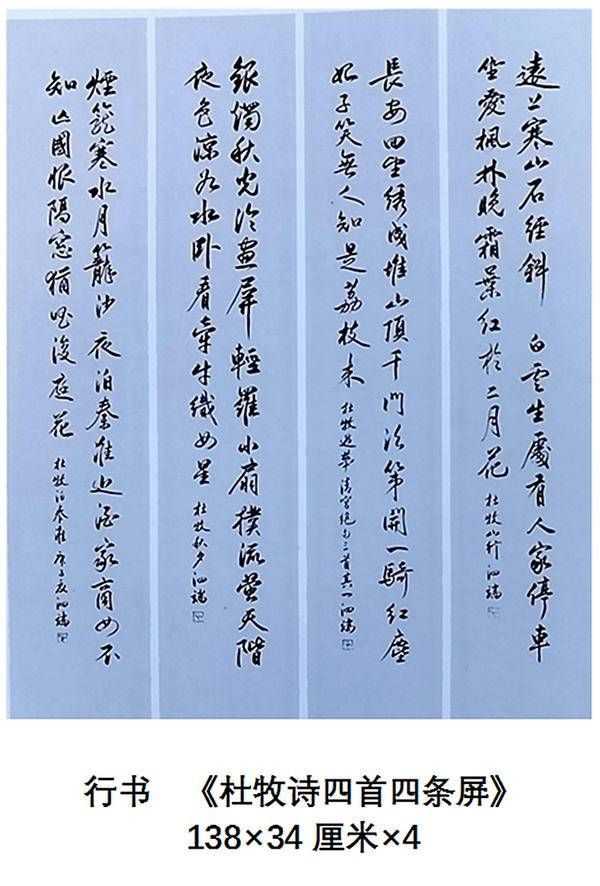 遠上寒山石經斜 白雲生處有人家停車
坐愛楓林晚霜葉紅於二月花 杜牧山行 泗端
長安回望綉成堆山頂千門次第開一騎紅塵
妃子笑無人知是荔枝來 杜牧過華清宮絕句三首其一 泗端
銀燭秋光冷畫屏輕羅小扇撲流螢天階
夜色涼如水卧看牽牛織女星 杜牧秋夕 泗端
煙籠寒水月籠沙夜泊秦淮近酒家商女不
知亡國恨隔窓猶唱後庭花 杜牧泊秦淮 庚子夏泗端
行书 《杜牧诗四首四条屏》
138×34 厘米×4